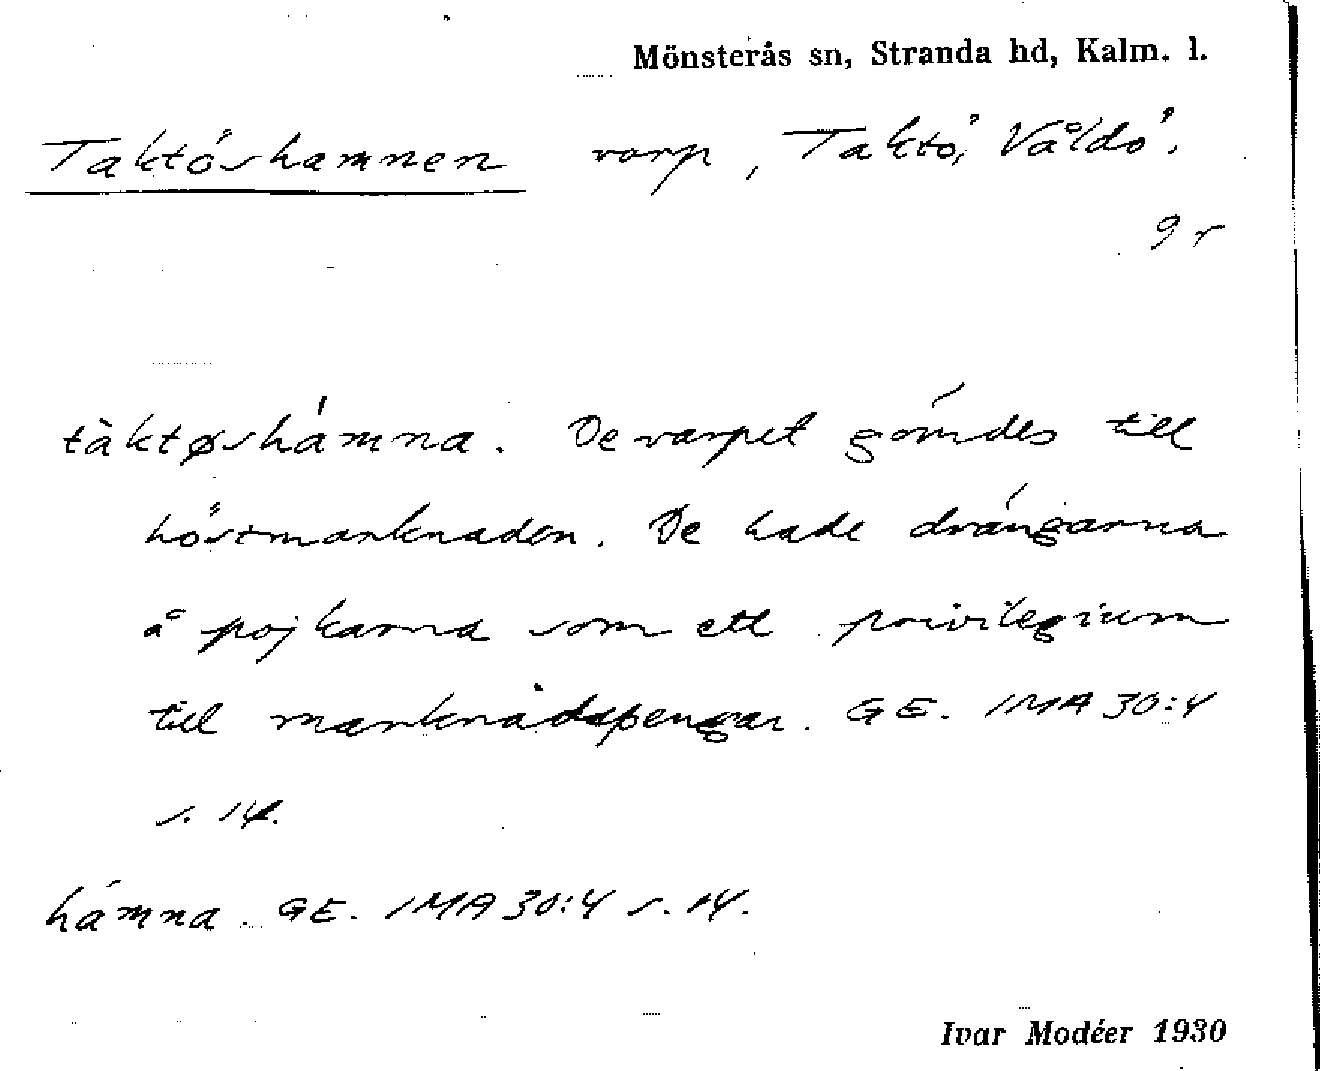 Mönsterås sn, Stranda hd, Kalm. l.
Taktöshamnen varp, Taktö, Våldö.
9 r
tàktøshámna. De varpet gömdes till
höstmarknaden. De hade drängarna
å pojkarna som ett privilegium
till marknadspengar. GE. IMA 30:4
s. 14.
hámna. GE. IMA 30:4 s. 14.
Ivar Modéer 1930